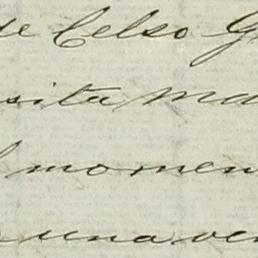 de Celso G
sita ma
l momen
una ve